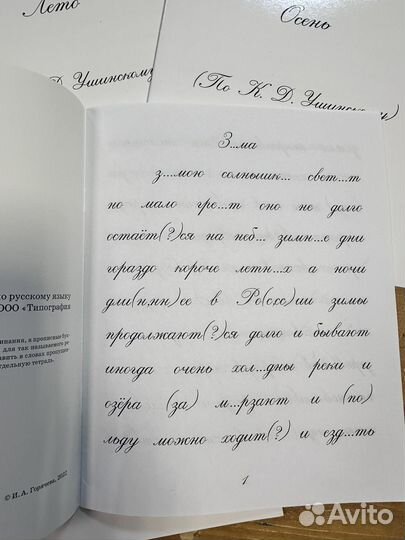 Лето
Осень
Д. Ушинскому
(По К. Д. Ушинскому)
о русскому языку
ООО «Типография
для так называемого
вить в словах
отдельную тетрадь.
© И. А. Горячева, 2022
З...ма
з...мою солнышк... свет...т
но мало гре...т оно не долго
остаёт(?)ся на неб... зимн...е дни
гораздо короче летн...х а ночи
дли(н,нн)ее в Ро(с,сс)ии зимы
продолжают(?)ся долго и бывают
иногда очень хол...дны реки и
озёра (за) м...рзают и (по)
льду можно ходит(?) и езд...ть
1
Avito